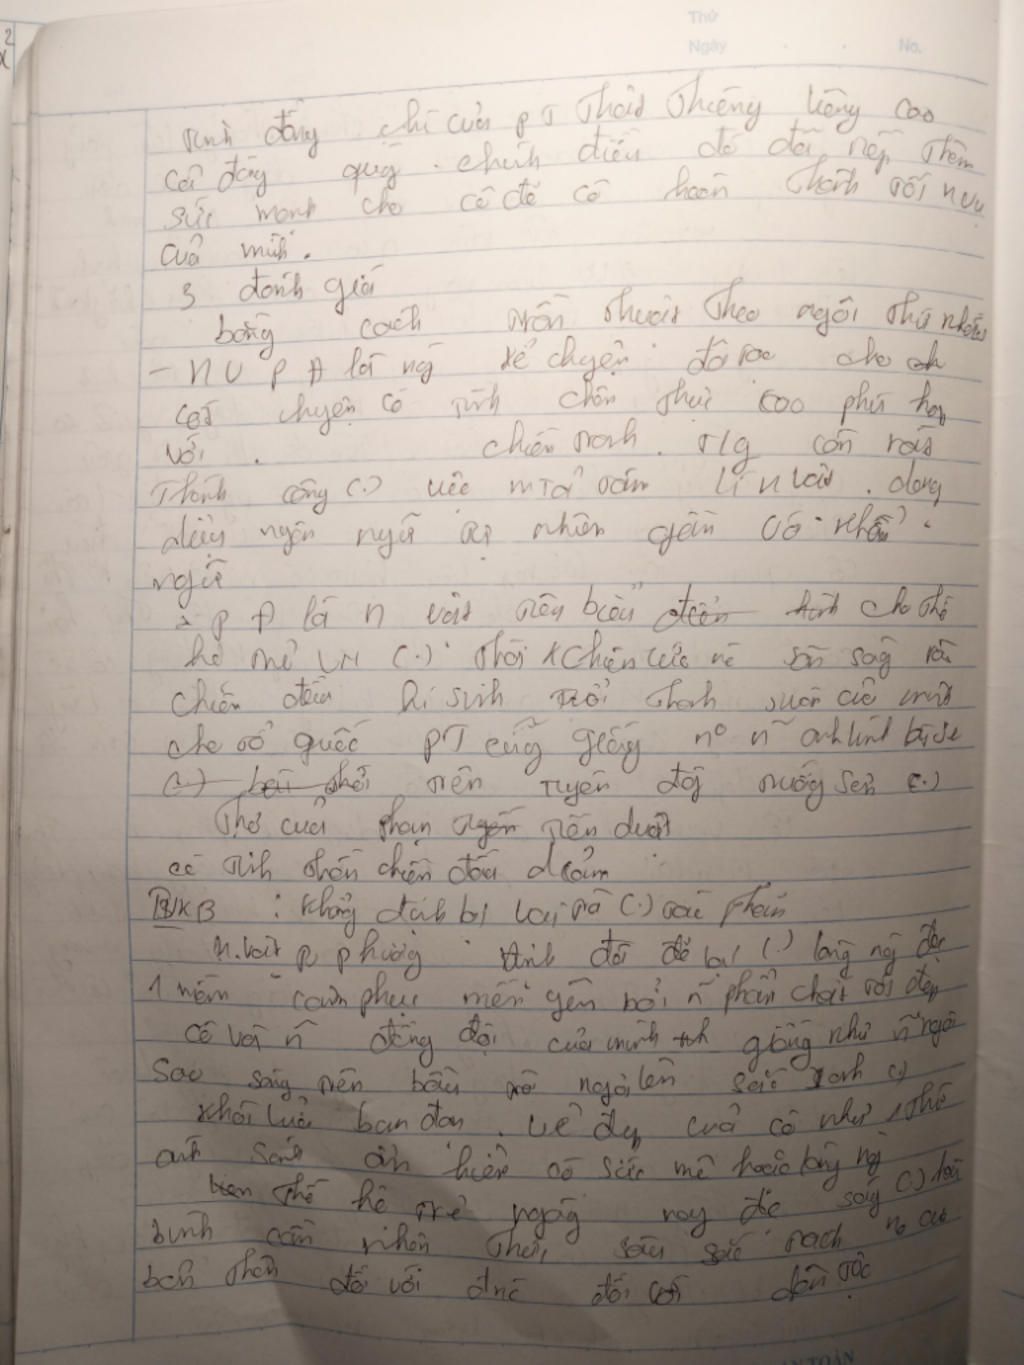 Thứ
Ngày No.
tình đồng chí của PT thật thiêng liêng cao
cả đáng quý. chính điều đó đã tiếp thêm
sức mạnh cho cô để cô hoàn thành tốt nvụ
của mình.
3 đánh giá
bằng cách trần thuật theo ngôi thứ nhất
- NV P Đ là ng kể chuyện đã tạo cho
câu chuyện có tính chân thực cao phù hợp
với . chiến tranh. T/g còn rất
thành công (.) việc mtả tâm lí n vật. dòng
ngôn ngữ tự nhiên gần với khẩu
ngữ
P Đ là n vật tiêu biểu cho thế
hệ trẻ VN (.) thời kchiến cứu nc sẵn sàng
chiến đấu hi sinh tuổi thanh xuân của mình
cho tổ quốc PT cũng giống n anh lính lái xe
trên tuyến đg trường sơn (.)
thơ của phạm tiến duật
có tinh thần chiến đấu
KB : khẳng định lại vđ (.) tác phẩm
N.vật P phương định đã để lại (.) lòng ng đọc
1 niềm cảm phục mến yên bởi n phẩm chất tốt đẹp
cô với n đồng đội của mình giống như n ngôi
sao sáng trên bầu trời ngời lên sắc xanh (.)
khói lửa bom đạn. vẻ đẹp của cô như thế
ánh sáng ẩn hiện có sức mê hoặc lòng ng
thế hệ trẻ ngày nay đc sống (.) hòa
bình cần nhận thức sâu sắc trách no của
bản thân đối với đnc đối với dân tộc